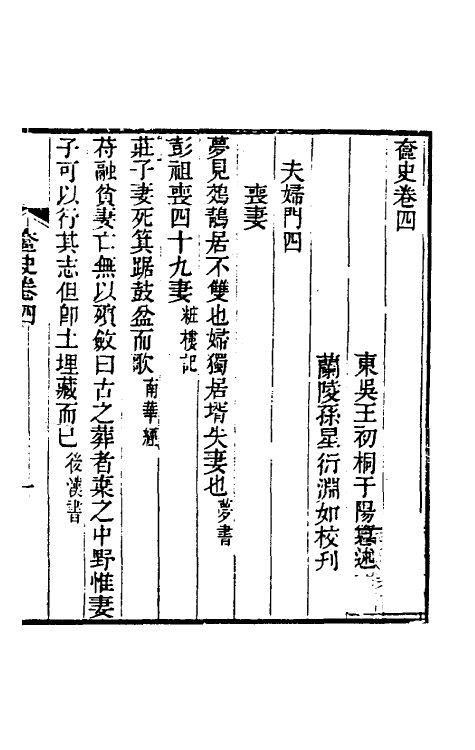 奩史卷四
東吳王初桐于陽纂述
蘭陵孫星衍淵如校刊
夫婦門四
喪妻
夢見鵁鶄居不雙也婦獨居壻失妻也夢書
彭祖喪四十九妻粧樓記
莊子妻死箕踞鼓盆而歌南華經
苻融貧妻亡無以殯斂曰古之葬者棄之中野惟妻
子可以行其志但卽土埋藏而已後漢書
奩史卷四
一